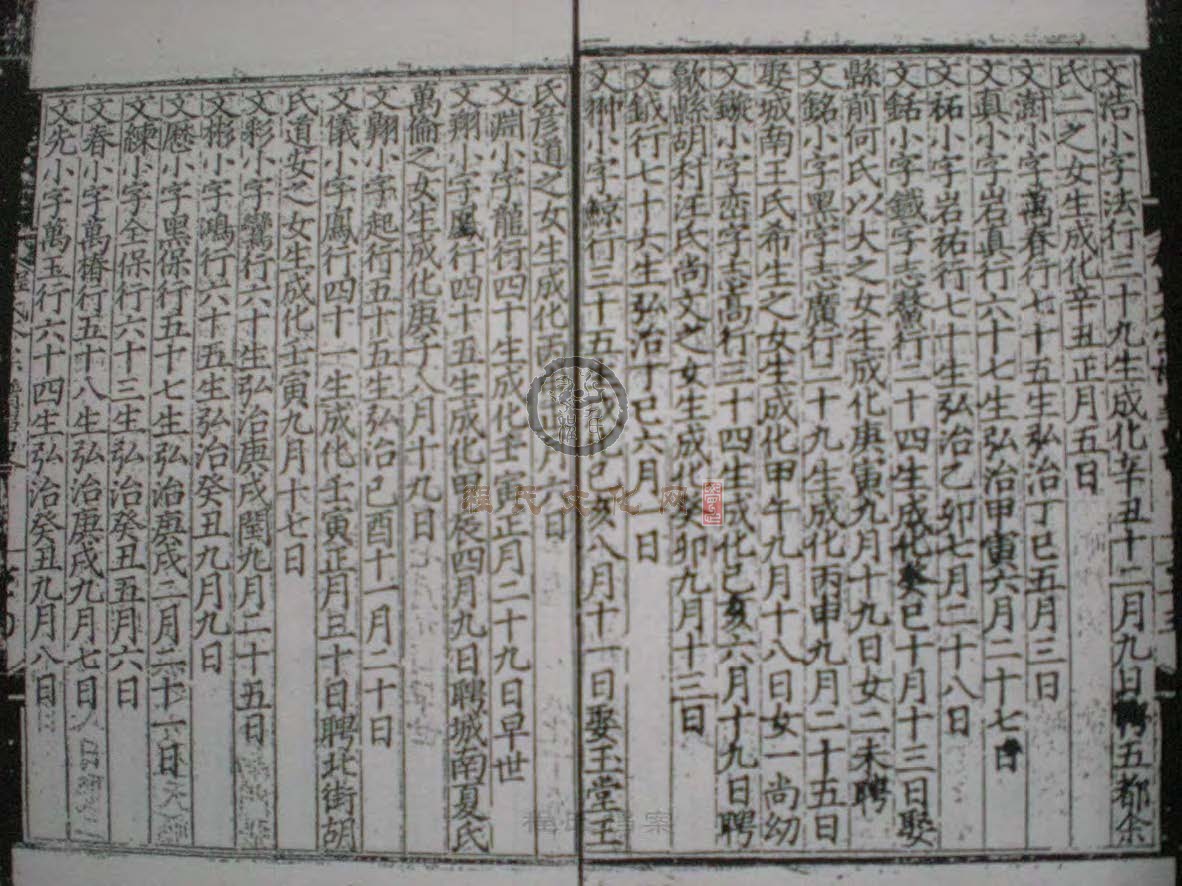 文浩小字法行三十九生成化辛丑十二月九日聘五都余
氏二之女生成化辛丑正月五日
文澍小字萬春行七十五生弘治丁巳五月三日
文真小字岩真行六十七生弘治甲寅六月二十七日
文祐小字岩祐行七十生弘治乙卯七月二十八日
文銛小字鐵字志鰲行二十四生成化癸巳十月十三日娶
縣前何氏以大之女生成化庚寅九月十九日女二未聘
文銘小字黑字志廣行二十九生成化丙申九月二十五日
娶城南王氏希生之女生成化甲午九月十八日女一尚幼
文鏾小字巒字志高行三十四生成化己亥六月十九日聘
歙縣胡村汪氏尚文之女生成化癸卯九月十三日
文鉞行七十六生弘治丁巳六月一日
文小字鯨行三十五生成化己亥八月十一日娶玉堂王
氏彦道之女生成化丙月六日
文淵小字龍行四十生成化壬寅正月二十九日早世
文翔小字鳳行四十五生成化甲辰四月九日聘城南夏氏
萬倫之女生成化庚子八月十九日
文翱小字起行五十五生弘治己酉十一月二十日
文儀小字鳳行四十一生成化壬寅正月三十日聘北街胡
氏道安之女生成化壬寅九月十七日
文彩小字鸞行六十生弘治庚戌閏九月二十五日
文彬小字鴻行六十五生弘治癸丑九月九日
文歷小字黑保行五十七生弘治庚戌三月二十六日
文練小字全保行六十三生弘治癸丑五月六日
文春小字萬椿行五十八生弘治庚戌九月七日
文先小字萬玉行六十四生弘治癸丑九月八日
程氏文化网
程氏档案